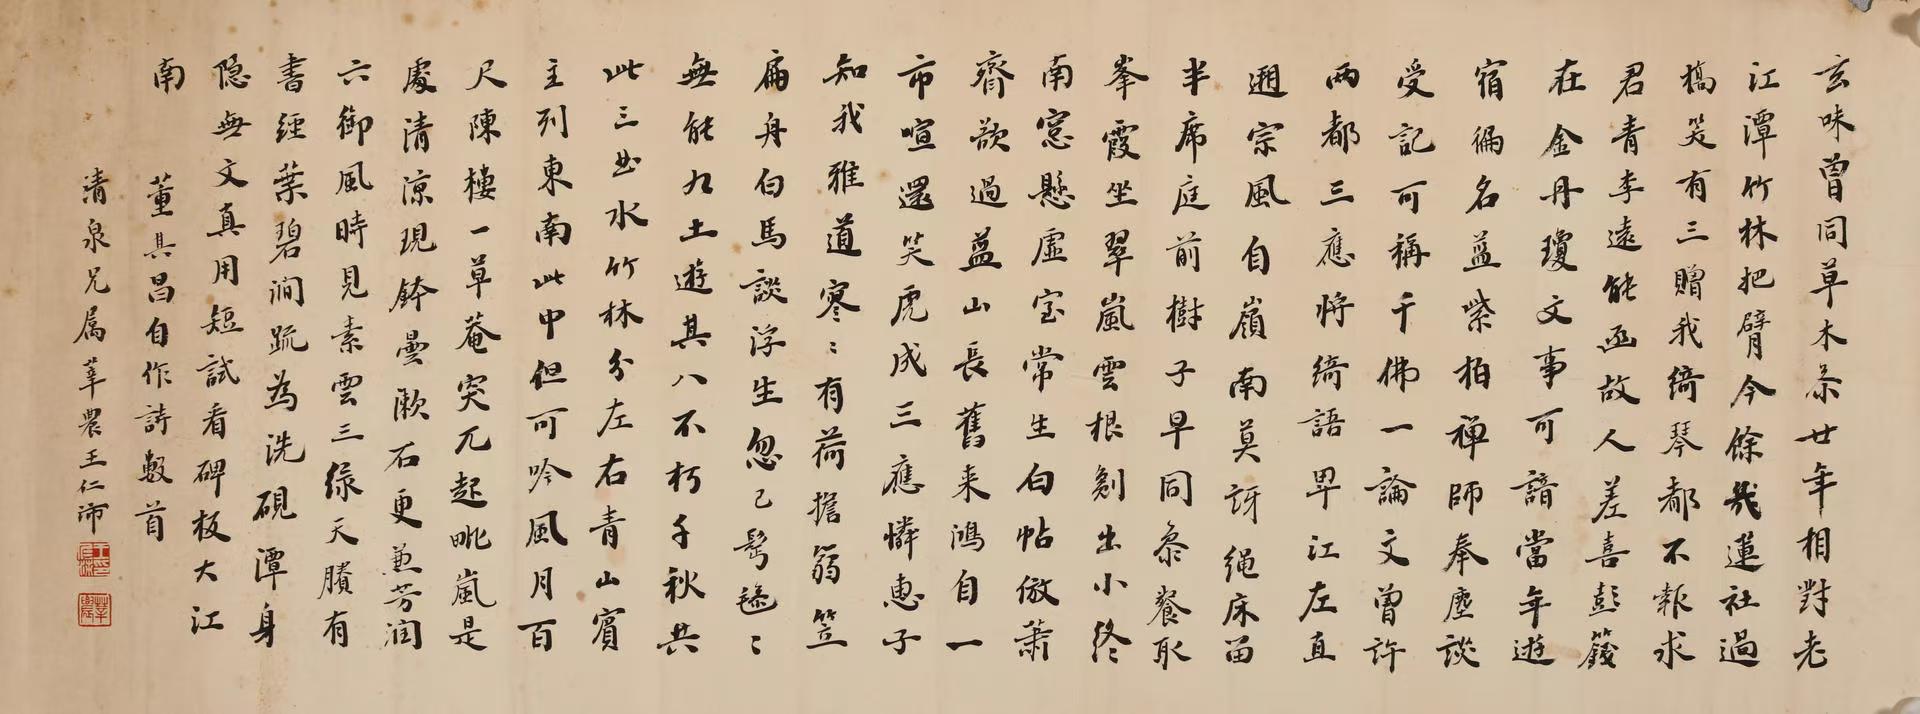 玄味曾同草木茶廿年相對老
江潭竹林把臂今餘幾蓮社過
橋笑有三贈我綺琴都不報求
君青李遠能函故人差喜彭籛
在金丹瓊文事可諳當年遊
宿徧名藍紫柏禪師奉塵談
受記可稱千佛一論文曾許
兩都三應將綺語畀江左直
遡宗風自嶺南莫訝繩床留
半席庭前樹子早同叅餐取
峯霞坐翠嵐雲根剏出小終
南窓懸虛室常生白帖倣蕭
齋欲過藍山長舊来鴻自一
市喧還笑虎成三應憐惠子
知我雅道寒〻有荷擔翁笠
扁舟白馬談浮生忽已髩毿〻
無能九土遊其八不朽千秋共
此三曲水竹林分左右青山賓
主列東南此中但可吟風月百
尺陳樓一草菴突兀起毗嵐是
處清涼現鉢曇漱石更兼芳潤
六御風時見素雲三緑天賸有
書經葉碧澗疏為洗硯潭身
隐無文真用短試看碑板大江
南
董其昌自作詩數首
清泉兄属莘農王仁沛